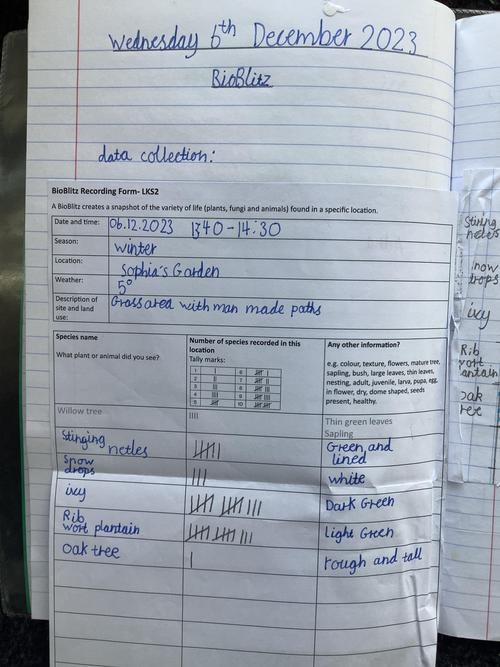 Wednesday 6th December 2023
BioBlitz
data collection:
BioBlitz Recording Form- LKS2
A BioBlitz creates a snapshot of the variety of life (plants, fungi and animals) found in a specific location.
Date and time: 06.12.2023 1340-14:30
Season: winter
Location: Sophia's Garden
Weather: 5°
Description of site and land use: Grass area with man made paths
Species name
What plant or animal did you see?
Number of species recorded in this location
Tally marks:
1 2 3 4 5 6 7 8 9 10
Any other information?
e.g. colour, texture, flowers, mature tree, sapling, bush, large leaves, thin leaves, nesting, adult, juvenile, larva, pupa, egg, in flower, dry, dome shaped, seeds present, healthy.
Willow tree IIII Thin green leaves
Sapling
Stinging netles Green and lined
Snow drops III white
ivy Dark Green
Rib wort plantain Light Green
oak tree I rough and tall
Stinging
netles
ivy
Rib
wort